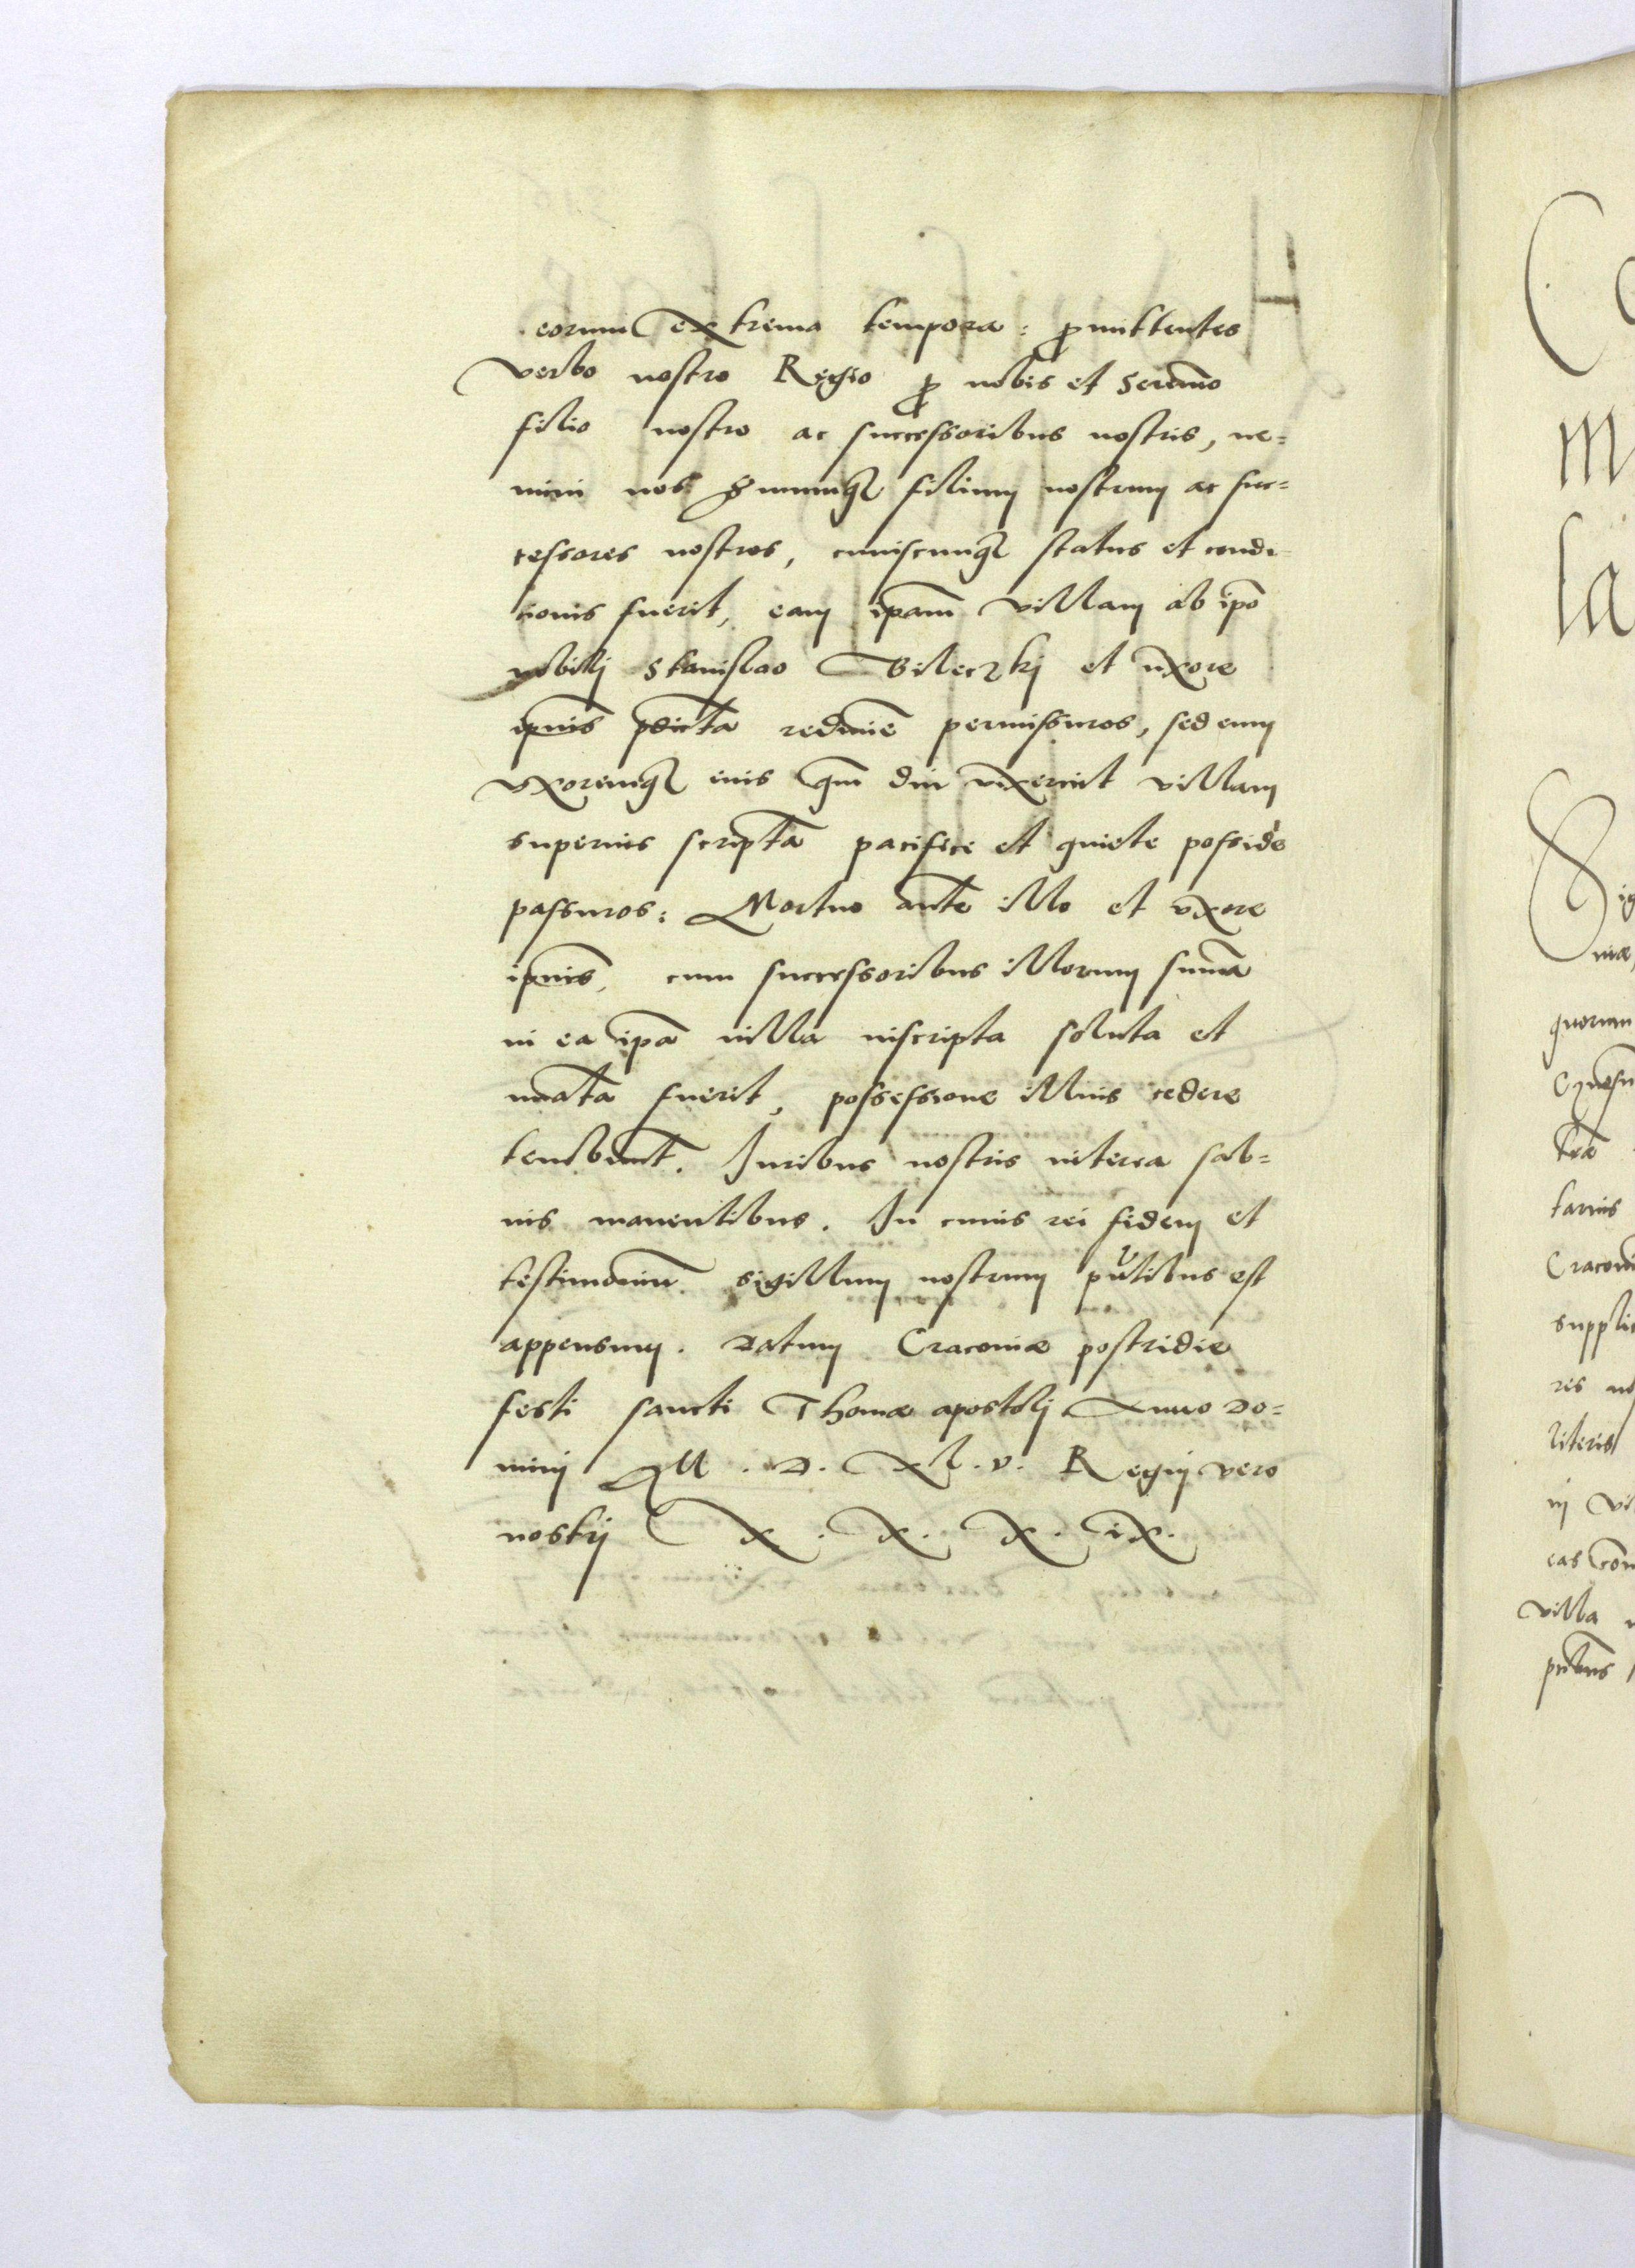 eorum extrema tempora: ꝓmittentes
verbo nostro Regio ꝓ nobis et Sereniss͞mo
filio nostro ac successoribus nostris, ne=
mini nos filiumq̨ nostrum ac suc=
cessores nostros, cuiuscunq̨ status et condi-
cionis fuerit, eam ip̄am villam ab ip̄o
nobili Stanislao Bileczkj et uxore
ip̄ius p̄dicta redimē permissuros, sed eum
vxoremq̨ eius q̄m diu vixerint villam
superius scriptā pacifice et quiete posside
passuros: Mortuo aut̄e illo et vxore
ip̄ius, cum successoribus illorum sum̄a
in ea ip̄a villa inscripta soluta et
nūata fuerit, possessione illius cedere
tenebunt̄. Juribus nostris interea sal=
uis manentibus. In cuius rei fidem et
testimoniū sigillum nostrum pn̄tibus est
appensum. Datum Cracoviæ postridie
festi sancti Thomæ apostolj Anno Do=
minj M.D.XL.V. Regnj vero
nostrj X.X.X.IX.
Sig
quorum
tarius
supplic
literis
villa